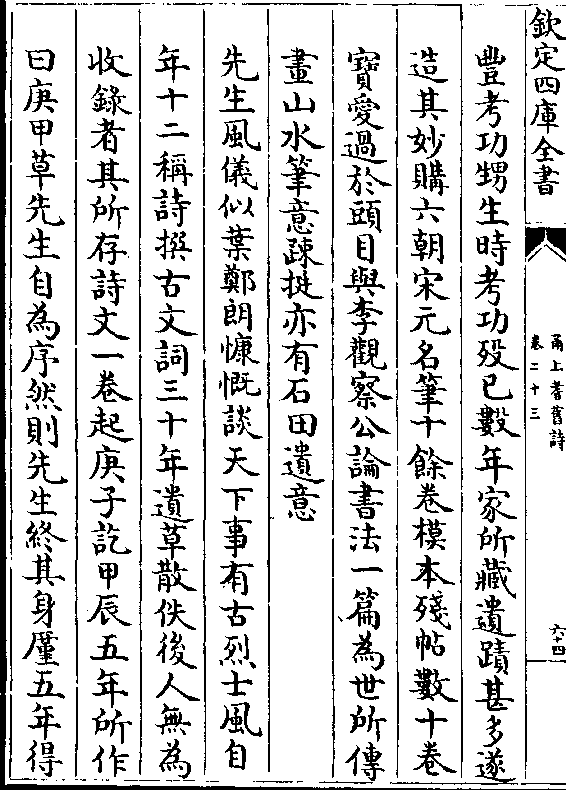 欽定四庫全書
甬上耆舊詩
卷二十三
六十四
豐考功甥生時考功殁已數年家所藏遺蹟甚多遂
造其妙購六朝宋元名筆十餘卷模本殘帖數十卷
寶愛過於頭目與李觀察公論書法一篇為世所傳
畫山水筆意踈挺亦有石田遺意
先生風儀似葉鄭朗慷慨談天下事有古烈士風自
年十二稱詩撰古文詞三十年遺草散佚後人無為
收錄者其所存詩文一卷起庚子訖甲辰五年所作
曰庚甲草先生自為序然則先生終其身厪五年得